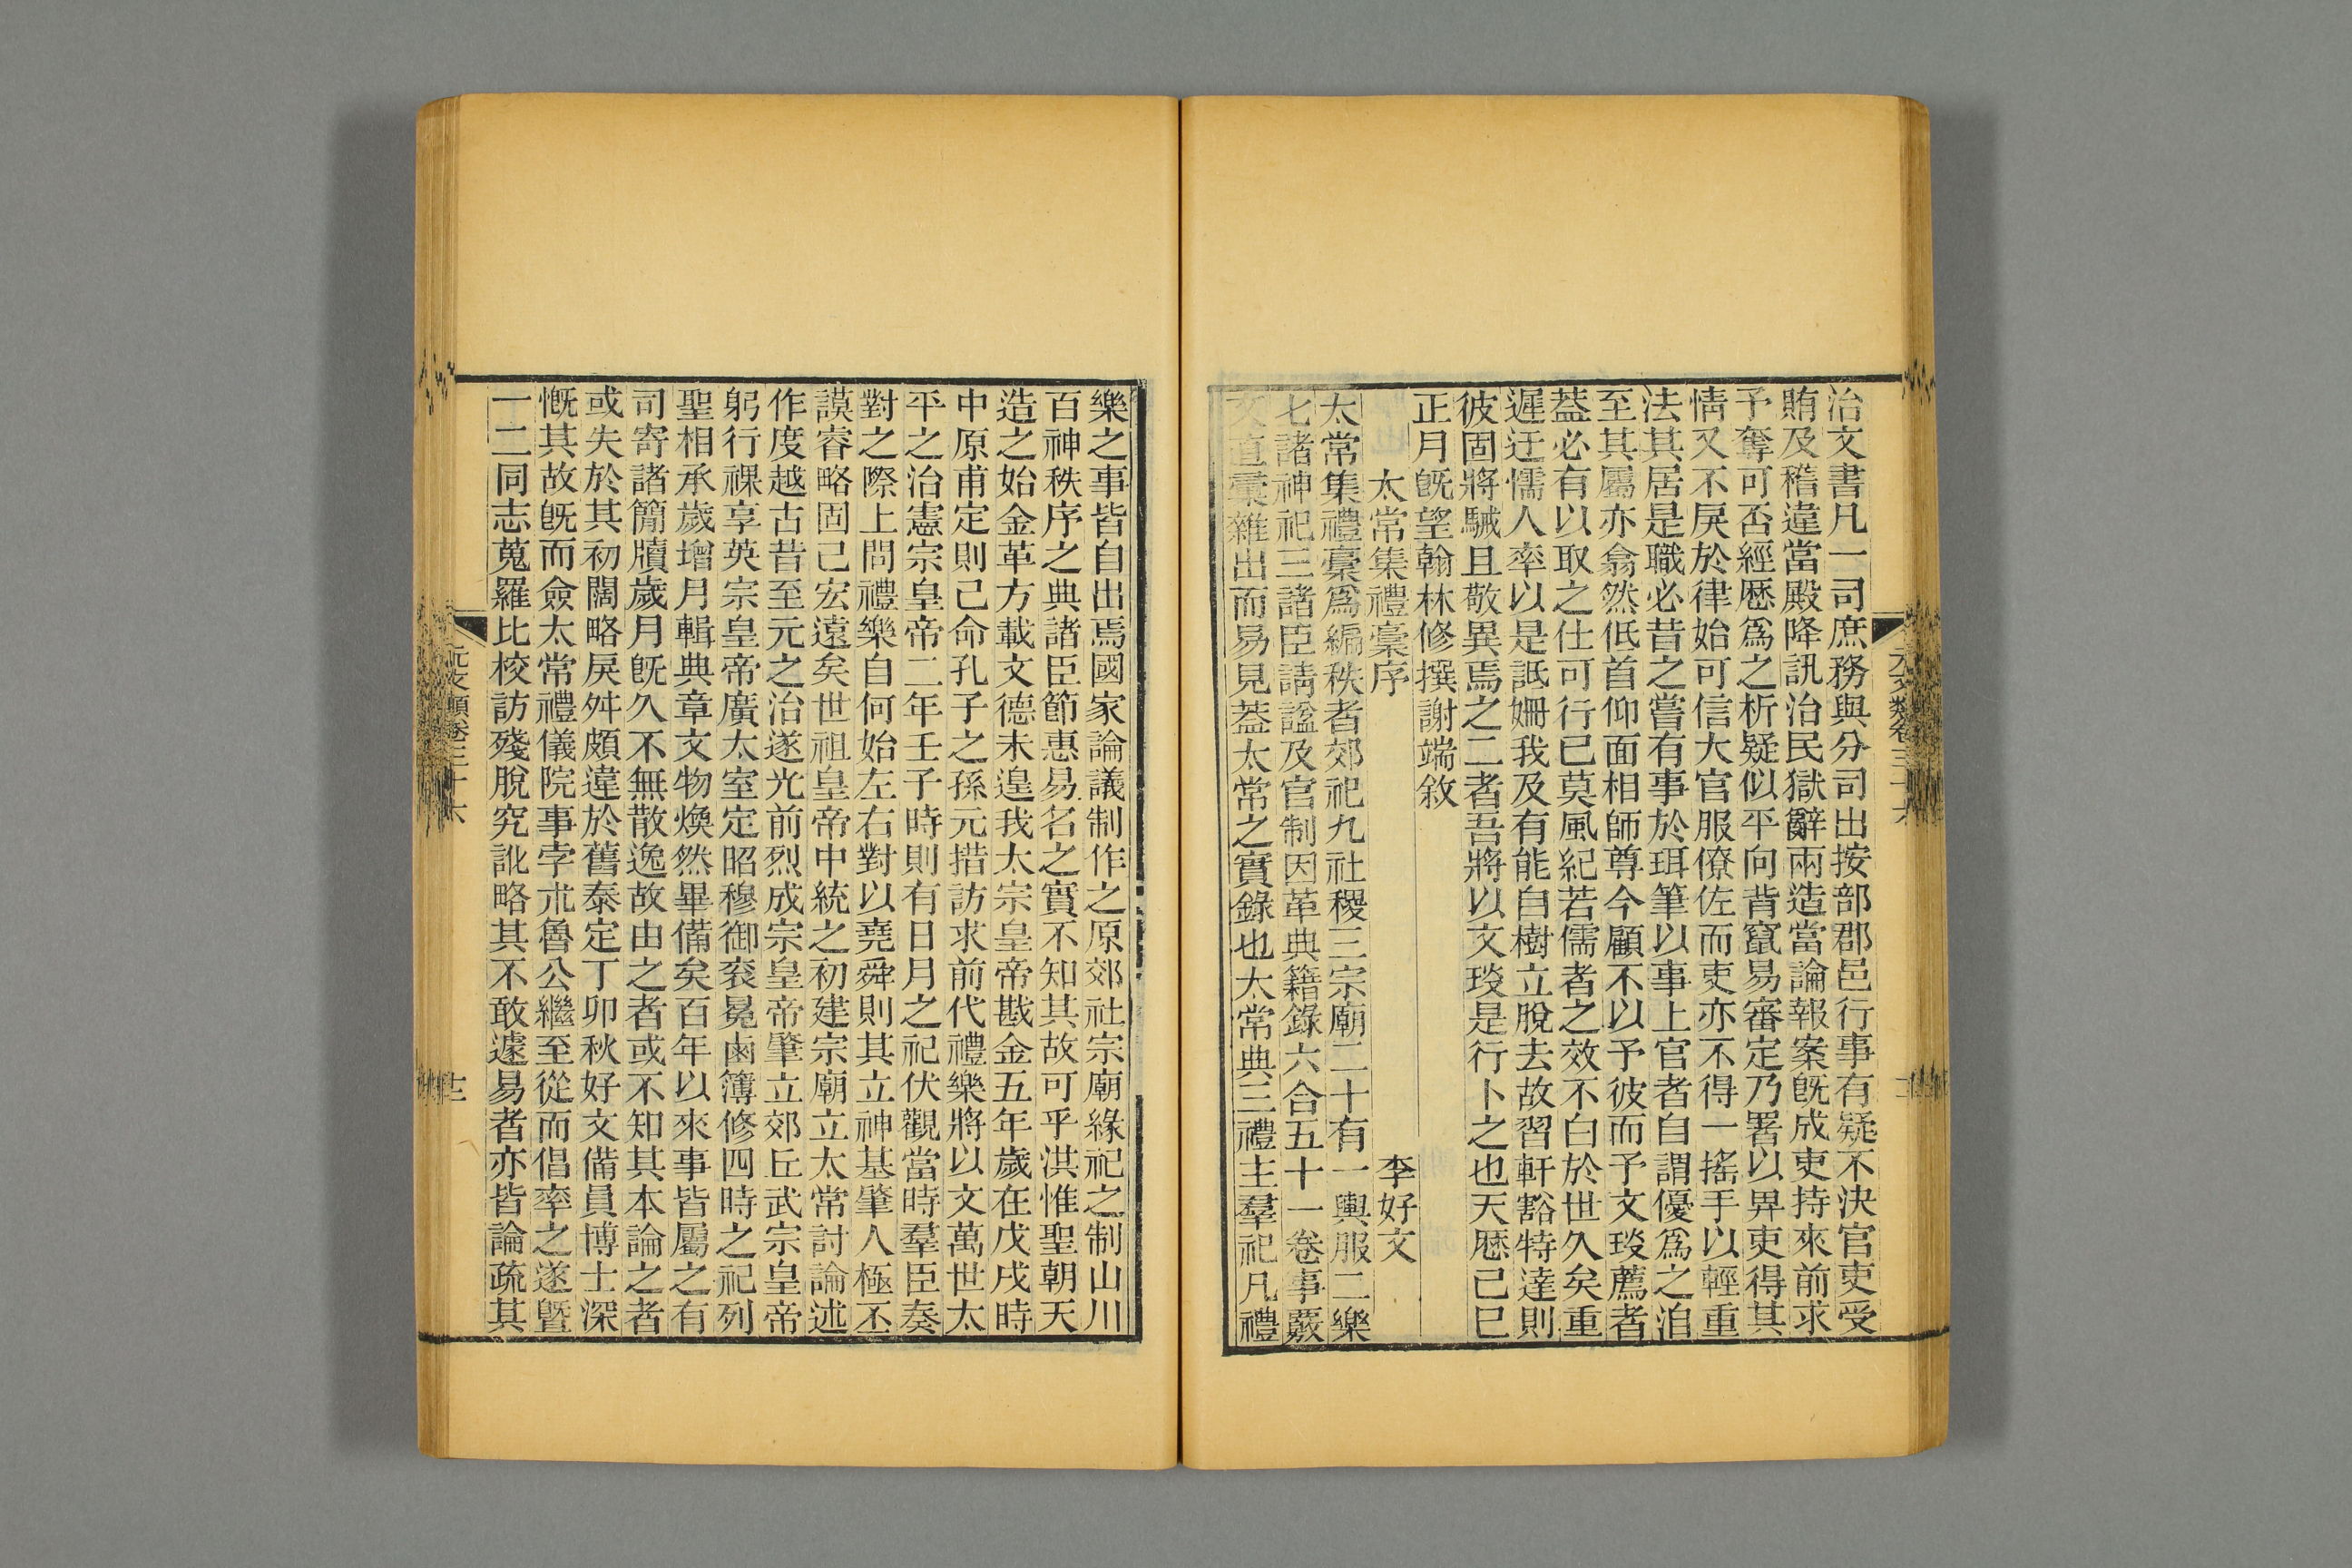 治文書凡一司庶務與分司出按部郡邑行事有疑不決官吏受
賄及稽違當殿降訊治民獄辭兩造當論報案旣成吏持來前求
予奪可否經歷爲之析疑似平向背竄易審定乃署以畀吏得其
情又不戾於律始可信大官服僚佐而吏亦不得一搖手以輕重
法其居是職必昔之嘗有事於珥筆以事上官者自謂優爲之洎
至其屬亦翕然低首仰面相師尊今顧不以予彼而予文琰薦者
葢必有以取之仕可行已莫風紀若儒者之效不白於世久矣重
遲迂懦人率以是詆姍我及有能自樹立脫去故習軒豁特達則
彼固將駴且敬異焉之二者吾將以文琰是行卜之也天歷己巳
正月旣望翰林修撰謝端敘
太常集禮藁序
李好文
太常集禮藁爲編秩者郊祀九社稷三宗廟二十有一輿服二樂
七諸神祀三諸臣請諡及官制因革典籍錄六合五十一卷事覈
文直彙雜出而易見葢太常之實錄也太常典三禮主羣祀凡禮
樂之事皆自出焉國家論議制作之原郊社宗廟緣祀之制山川
百神秩序之典諸臣節惠易名之實不知其故可乎洪惟聖朝天
造之始金革方載文德未遑我太宗皇帝戡金五年歲在戊戌時
中原甫定則己命孔子之孫元措訪求前代禮樂將以文萬世太
平之治憲宗皇帝二年壬子時則有日月之祀伏觀當時羣臣奏
對之際上問禮樂自何始左右對以堯舜則其立神基肇人極丕
謨睿略固己宏遠矣世祖皇帝中統之初建宗廟立太常討論述
作度越古昔至元之治遂光前烈成宗皇帝肇立郊丘武宗皇帝
躬行祼享英宗皇帝廣太室定昭穆御衮冕鹵簿修四時之祀列
聖相承歲增月輯典章文物煥然畢備矣百年以來事皆屬之有
司寄諸簡牘歲月旣久不無散逸故由之者或不知其本論之者
或失於其初闊略戾舛頗違於舊泰定丁卯秋好文備員博士深
慨其故旣而僉太常禮儀院事孛朮魯公繼至從而倡率之遂曁
一二同志蒐羅比校訪殘脫究訛略其不敢遽易者亦皆論疏其
元文類卷三十六
十二